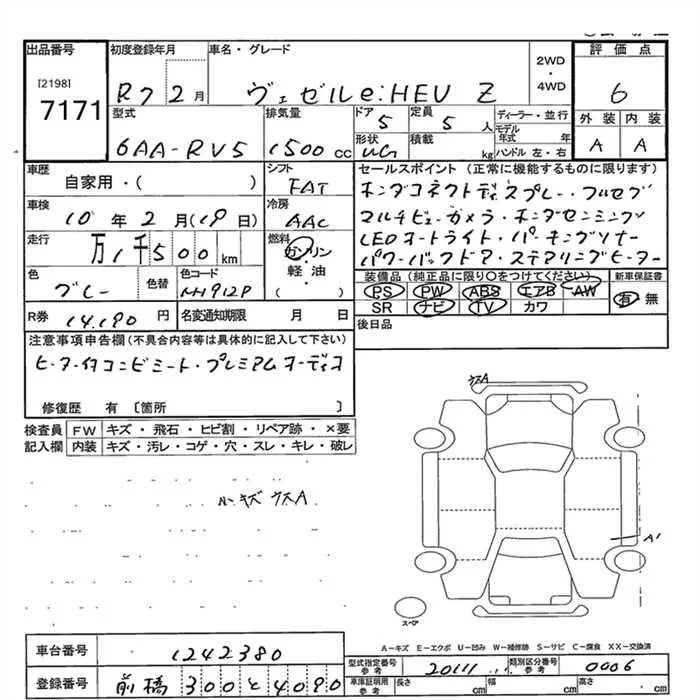 出品番号
[2198]
7171
初度登録年月
R7 2月
車名・グレード
ヴェゼル e:HEV Z
2WD
・
4WD
評価点
6
外装 内装
A A
型式
6AA-RV5
排気量
1500 CC
ドア
5
定員
5 人
ディーラー・並行
モデル年式 年
ハンドル 左・右
形状
UG
積載
kg
車歴
自家用・( )
シフト
FAT
セールスポイント (正常に機能するものに限ります)
ホンダコネクトディスプレー・フルセグ
マルチビューカメラ・ホンダセンシング
LEDオートライト・パーキングソナー
パワーバックドア・ステアリングヒーター
車検
10年2月(19日)
冷房
AAC
走行
万1千500km
燃料
ガソリン
・
軽油
・
( )
色
グレー
色替
色コード
NH912P
装備品 (純正品に限り○をつけてください)
PS PW ABS エアB AW
SR ナビ TV カワ
新車保証書
有 無
R券 14,190円
名変通知期限 月 日
後日品
注意事項申告欄 (不具合内容等は具体的に記入して下さい)
ヒーター付コンビシート・プレミアムオーディオ
修復歴 有 〔箇所 〕
検査員 FW キズ・飛石・ヒビ割・リペア跡・×要
記入欄 内装 キズ・汚レ・コゲ・穴・スレ・キレ・破レ
ウスA
ルーキズ ウスA
A'
スペア
A-キズ E-エクボ U-凹み W-補修跡 S-サビ C-腐食 XX-交換済
車台番号 1242380
登録番号 前橋 300 と 4090
型式指定番号
参考
20111
類別区分番号
参考
0006
車庫証明用
参考
長さ cm
幅 cm
高さ cm